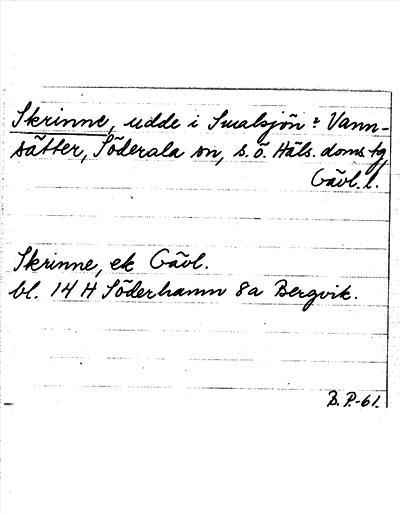 Skrinne, udde i Smalsjön : Vann-
sätter, Söderala sn, s. ö. Häls. doms. tg
Gävl. l.
Skrinne, ek Gävl.
bl. 14 H Söderhamn 8a Bergvik.
B. P.-61.